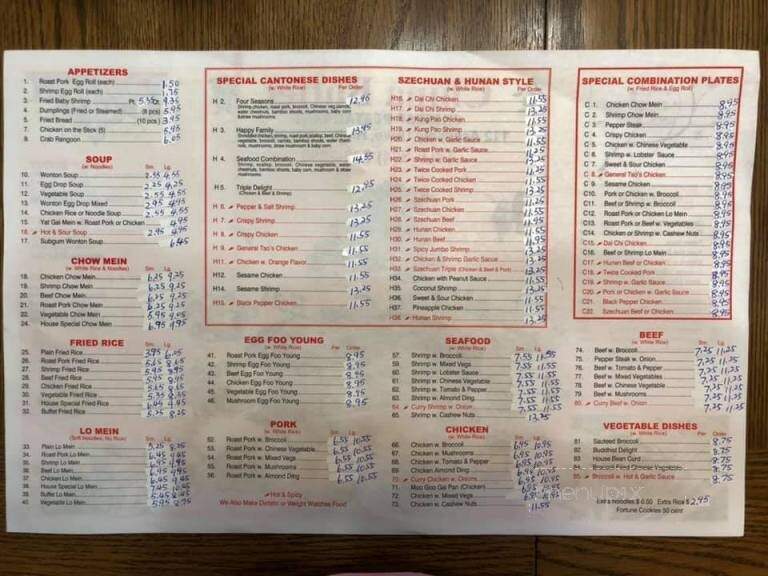 APPETIZERS
1. Roast Pork Egg Roll (each) 1.50
2. Shrimp Egg Roll (each) 1.75
3. Fried Baby Shrimp Pt. Qt.
4. Dumplings (Fried or Steamed) (8 pcs) 5.95
5. Fried Bread (10 pcs) 3.95
7. Chicken on the Stick (5) 5.95
8. Crab Rangoon
SOUP
(w. Noodles) Sm. Lg.
10. Wonton Soup 2.55 4.55
11. Egg Drop Soup 2.25 4.25
12. Vegetable Soup 2.55 4.55
13. Wonton Egg Drop Mixed 2.95 4.95
14. Chicken Rice or Noodle Soup 2.55 4.55
15. Yat Gai Mein w. Roast Pork or Chicken 4.95
16. Hot & Sour Soup 2.95 4.95
17. Subgum Wonton Soup 6.45
CHOW MEIN
(w. White Rice & Noodles) Sm. Lg.
18. Chicken Chow Mein 6.25 9.25
19. Shrimp Chow Mein 6.25 9.25
20. Beef Chow Mein 6.25 9.25
21. Roast Pork Chow Mein 6.25 9.25
22. Vegetable Chow Mein 5.95
24. House Special Chow Mein 6.95 9.95
FRIED RICE
Sm. Lg.
25. Plain Fried Rice 3.95 6.25
26. Roast Pork Fried Rice 5.65 8.65
27. Shrimp Fried Rice
28. Beef Fried Rice
29. Chicken Fried Rice 5.65 8.65
30. Vegetable Fried Rice
31. House Special Fried Rice
32. Buffet Fried Rice 5.25 8.25
LO MEIN
(Soft Noodles, No Rice) Sm. Lg.
33. Plain Lo Mein 5.25 8.25
34. Roast Pork Lo Mein 6.45 9.45
35. Shrimp Lo Mein 6.45 9.45
36. Beef Lo Mein 6.45 9.45
37. Chicken Lo Mein 6.45 9.45
38. House Special Lo Mein
39. Buffet Lo Mein
40. Vegetable Lo Mein 5.95 8.75
SPECIAL CANTONESE DISHES
(w. White Rice) Per Order
H 2. Four Seasons 12.95
Shrimp, chicken, roast pork, broccoli, Chinese vegetables,
water chestnuts, bamboo shoots, mushrooms, baby corn
H 3. Happy Family 13.95
H 4. Seafood Combination 14.55
H5. Triple Delight 12.95
(Chicken & Beef & Shrimp)
H 6. Pepper & Salt Shrimp 13.25
H 7. Crispy Shrimp 13.25
H 8. Crispy Chicken 11.55
H 9. General Tso's Chicken 11.55
H11. Chicken w. Orange Flavor 11.55
H12. Sesame Chicken 11.55
H14. Sesame Shrimp 13.25
H15. Black Pepper Chicken 11.55
EGG FOO YOUNG
(w. White Rice) Per Order
41. Roast Pork Egg Foo Young 8.95
42. Shrimp Egg Foo Young 8.95
43. Beef Egg Foo Young 8.95
44. Chicken Egg Foo Young 8.95
45. Vegetable Egg Foo Young 8.95
46. Mushroom Egg Foo Young 8.95
PORK
(w. White Rice) Sm. Lg.
52. Roast Pork w. Broccoli 6.55 10.55
53. Roast Pork w. Chinese Vegetable 6.55 10.55
54. Roast Pork w. Mixed Vegs 6.55 10.55
55. Roast Pork w. Mushrooms 6.55 10.55
56. Roast Pork w. Almond Ding 6.55 10.55
Hot & Spicy
We Also Make Dietetic or Weight Watches Food
SZECHUAN & HUNAN STYLE
(w. White Rice) Per Order
H16. Dai Chi Chicken 11.55
H17. Dai Chi Shrimp 13.25
H18. Kung Pao Chicken 11.55
H19. Kung Pao Shrimp 13.25
H20. Chicken w. Garlic Sauce 11.55
H21. Roast Pork w. Garlic Sauce
H22. Shrimp w. Garlic Sauce 13.25
H23. Twice Cooked Pork 11.25
H24. Twice Cooked Chicken 11.55
H25. Twice Cooked Shrimp 13.25
H26. Szechuan Pork
H27. Szechuan Chicken 11.55
H28. Szechuan Beef
H29. Hunan Chicken 11.55
H30. Hunan Beef 11.95
H31. Spicy Jumbo Shrimp 13.25
H32. Chicken & Shrimp Garlic Sauce 13.25
H33. Szechuan Triple (Chicken & Beef & Pork) 13.25
H34. Chicken with Peanut Sauce 11.55
H35. Coconut Shrimp 13.25
H36. Sweet & Sour Chicken 11.55
H37. Pineapple Chicken 11.55
H38. Hunan Shrimp 13.25
SEAFOOD
(w. White Rice) Sm. Lg.
57. Shrimp w. Broccoli 7.55 11.55
59. Shrimp w. Mixed Vegs 7.55 11.55
60. Shrimp w. Lobster Sauce 7.55 11.55
61. Shrimp w. Chinese Vegetable 7.55 11.55
62. Shrimp w. Tomato & Pepper 7.55 11.55
63. Shrimp w. Almond Ding 7.55 11.55
64. Curry Shrimp w. Onion 7.55 11.55
65. Shrimp w. Cashew Nuts 13.25
CHICKEN
(w. White Rice) Sm. Lg.
66. Chicken w. Broccoli 6.95 10.95
67. Chicken w. Mushrooms 6.95 10.95
68. Chicken w. Tomato & Pepper 6.95 10.95
69. Chicken Almond Ding 6.95 10.95
70. Curry Chicken w. Onions 6.95 10.95
71. Moo Goo Gai Pan (Chicken) 6.95 10.95
72. Chicken w. Mixed Vegs 6.95 10.95
73. Chicken w. Cashew Nuts 11.55
SPECIAL COMBINATION PLATES
(w. Fried Rice & Egg Roll)
C 1. Chicken Chow Mein 8.95
C 2. Shrimp Chow Mein 8.95
C 3. Pepper Steak 8.95
C 4. Crispy Chicken 8.95
C 5. Chicken w. Chinese Vegetable 8.95
C 6. Shrimp w. Lobster Sauce 8.95
C 7. Sweet & Sour Chicken 8.95
C 8. General Tso's Chicken 8.95
C 9. Sesame Chicken 8.95
C10. Pork or Chicken w. Broccoli 8.95
C11. Beef or Shrimp w. Broccoli 8.95
C12. Roast Pork or Chicken Lo Mein 8.95
C13. Roast Pork or Beef w. Vegetables 8.95
C14. Chicken or Shrimp w. Cashew Nuts 8.95
C15. Dai Chi Chicken 8.95
C16. Beef or Shrimp Lo Mein 8.95
C17. Hunan Beef or Chicken 8.95
C18. Twice Cooked Pork 8.95
C19. Shrimp w. Garlic Sauce 8.95
C20. Pork or Chicken w. Garlic Sauce 8.95
C21. Black Pepper Chicken 8.95
C22. Szechuan Beef or Chicken 8.95
BEEF
(w. White Rice) Sm. Lg.
74. Beef w. Broccoli 7.25 11.25
75. Pepper Steak w. Onion 7.25 11.25
76. Beef w. Tomato & Pepper 7.25 11.25
77. Beef w. Mixed Vegetables 7.25 11.25
78. Beef w. Chinese Vegetable 7.25 11.25
79. Beef w. Mushrooms 7.25 11.25
80. Curry Beef w. Onion 7.25 11.25
VEGETABLE DISHES
(w. White Rice) Per Order
81. Sauteed Broccoli 8.75
82. Buddhist Delight 8.75
83. House Bean Curd 8.75
84. Broccoli Fried Chinese Vegetable 8.75
85. Broccoli w. Hot & Garlic Sauce 8.75
Extra noodles $ 0.50 Extra Rice $ 2.95
Fortune Cookies 50 cent